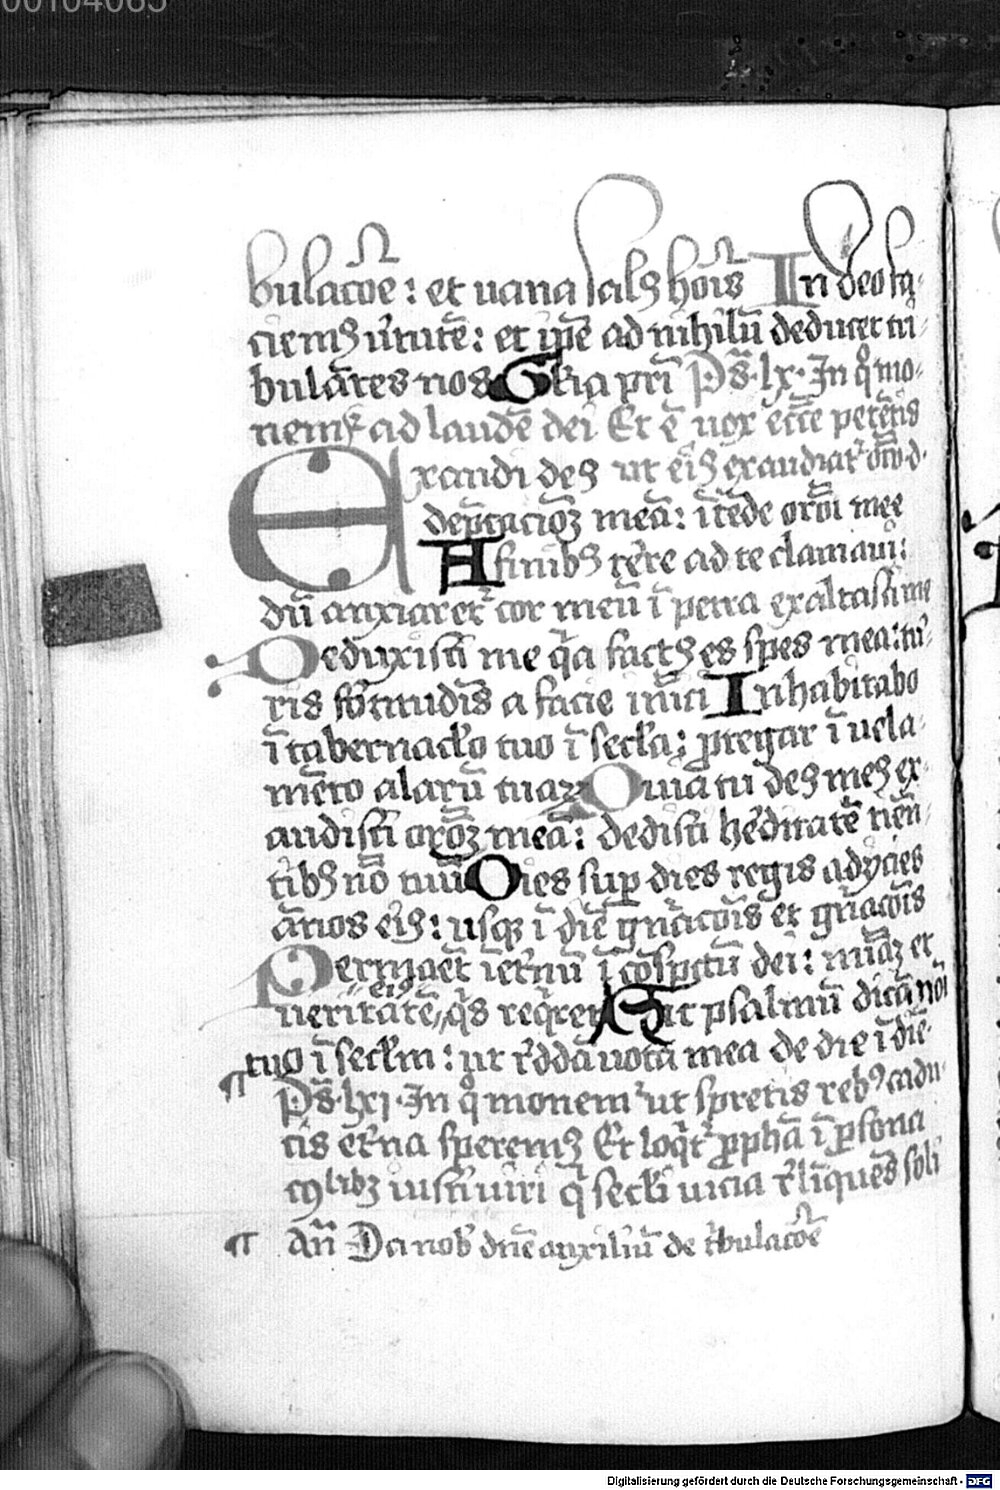 00104065
bulacōe: et uana salꝰ hoīs In deo fa-
ciemꝰ u̾tutē: et ip̄e ad nihilū deducet tri-
bulātes nos Gl̄ia pr̄i Ps̄. lx. In q̊ mo-
nemr̄ ad laudē dei Et ē uox ecc̄e petētis
Exaudi deꝰ
dep̄cacioꝫ meā: ītēde or̄oi mee
A finibꝰ t̾re ad te clamaui:
dū anxiaret̾ cor meū ī petra exaltasti me
Deduxisti me q̄a factꝰ es spes mea: tur-
ris fortitudīs a facie inīci Inhabitabo
ī tabernacl̄o tuo ī secl̄a: ꝓtegar ī uela-
mēto alarū tuaꝝ Quia tu deꝰ meꝰ ex-
audisti or̄oꝫ meā: dedisti h̾editatē timēn-
tibꝰ nō tuū Dies suꝑ dies regis adycies
ānos eiꝰ: usqꝫ ī diē gn̄acōis et gn̄acōis
Permāet īet̾nū ī cōspc̄tū dei: mīaꝫ et
ueritatē eiꝰ q̄s requiret Sic psalmū dicā nōi
tuo ī secl̄m: ut r̾ddā uota mea de die ī diē
¶ Ps̄. lxi. In q̊ monem̾ ut spretis rebꝰ cadu-
cis et̾na speremꝰ Et loq̄t̾ ꝓphā ī ꝑsona
cꝰlibꝫ iusti uiri q̄ secl̄i uicia r̾līquēs soli
¶ An̄ Da nob̾ dn̄e auxiliū de t̾bulacōe
Digitalisierung gefördert durch die Deutsche Forschungsgemeinschaft - DFG